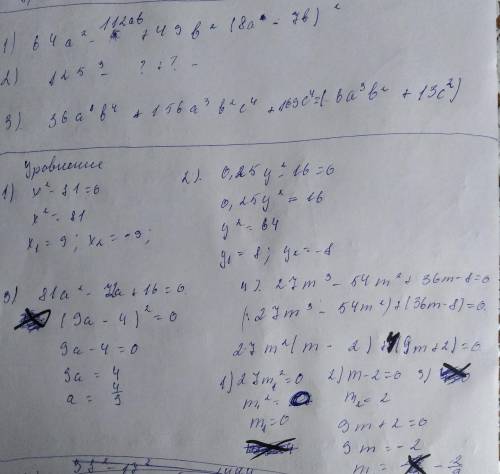 1) 64a² - 112ab + 49b² (8a - 7b)²
2) 125³ - ? + ? -
3) 36a⁸b⁴ + 156a³b²c⁴ + 169c⁴ = (6a³b² + 13c²)
Уравнение
1) x² - 81 = 0
x² = 81
x₁ = 9; x₂ = -9;
2). 0,25y² - 16 = 0
0,25y² = 16
y² = 64
y₁ = 8; y₂ = -8
3) 81a² - 72a + 16 = 0
(9a - 4)² = 0
9a - 4 = 0
9a = 4
a = 4/9
4). 27m³ - 54m² + 36m - 8 = 0
(27m³ - 54m²) + (36m - 8) = 0
27m² (m - 2) 4 (9m + 2) = 0
1) 27m₁² = 0
m₁² = 0
m₁ = 0
2) m - 2 = 0
m₂ = 2
3)
9m + 2 = 0
9m = -2
m = - 2/9